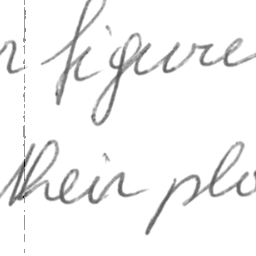 figure
their plo